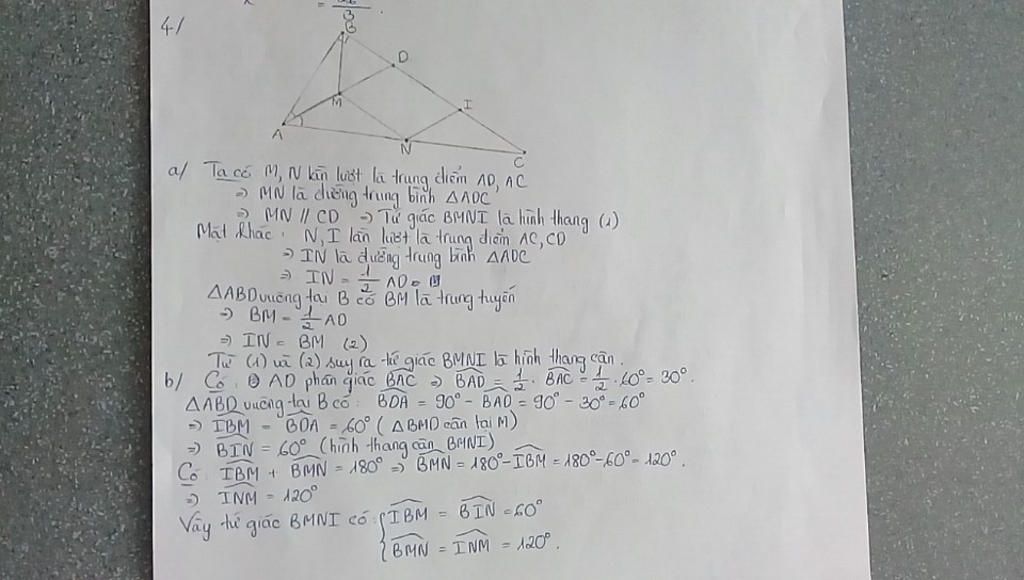 = 3 .
4/
B
D
M
I
A
N
C
a/ Ta có M, N lần lượt là trung điểm AD, AC
⇒ MN là đường trung bình △ADC
⇒ MN // CD ⇒ Tứ giác BMNI là hình thang (1)
Mặt khác : N, I lần lượt là trung điểm AC, CD
⇒ IN là đường trung bình △ADC
⇒ IN = 1/2 AD =
△ABD vuông tại B có BM là trung tuyến
⇒ BM = 1/2 AD
⇒ IN = BM (2)
Từ (1) và (2) suy ra tứ giác BMNI là hình thang cân.
b/ Có : AD phân giác BAC ⇒ BAD = 1/2 . BAC = 1/2 . 60° = 30°.
△ABD vuông tại B có : BDA = 90° - BAD = 90° - 30° = 60°
⇒ IBM = BDA = 60° (△BMD cân tại M)
⇒ BIN = 60° (hình thang cân BMNI)
Có : IBM + BMN = 180° ⇒ BMN = 180° - IBM = 180° - 60° = 120°.
⇒ INM = 120°
Vậy tứ giác BMNI có : { IBM = BIN = 60°
BMN = INM = 120°.